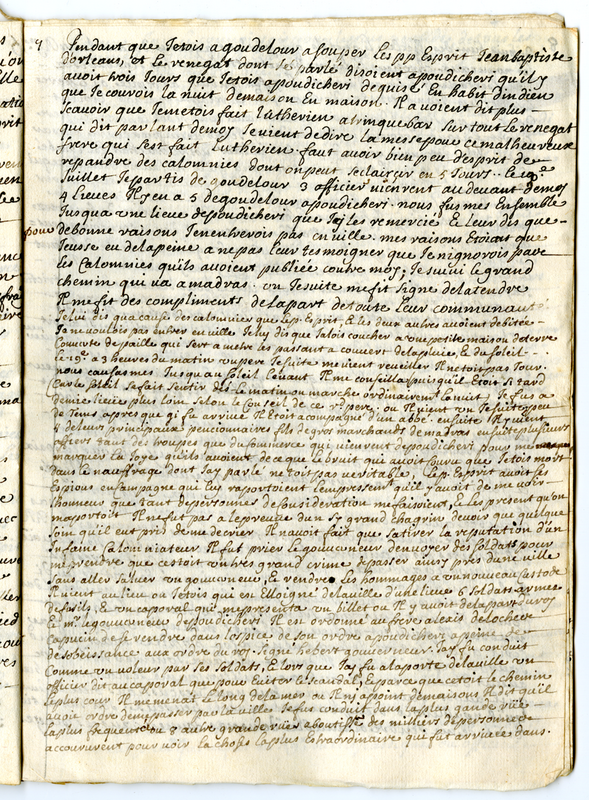 9 Pendant que Jetois a goudelour a souper Les pp Esprit Jean baptiste
dorleans, et Le renegat dont Jé parlé disoient apoudicheri quil y
avoit trois Jours que Jetois apoudicheri deguisé En habit dindien
que Je courois la nuit demaison En maison. Il avoient dit plus
scavoir que Jemetois fait Lutherien a trinquebar sur tout Le renegat
qui dit parlant demoy Je vient dedire la messe pour ce malheureux
frere qui sest fait Lutherien. faut avoir bien peu desprit de
repandre des calomnies dont on peut seclaircir en 5 Jours.. Le 19e
Juillet Je partis de goudelour 3 officier vienrent au devant demoy
4 lieues Il y en a 5 degoudelour apoudicheri. nous fusmes Ensemble
Jusqua une lieue depoudicheri que Je les remercié Et leur dis que
pour debonne raisons Jenentrerois pas en ville. mes raisons Etoient que
Jeusse eu delapeine a ne pas leur tesmoigner que Je nignorois pas
Les Calomnies quils avoient publiée contre moy; Je suivi le grand
chemin qui va amadras. un Jesuite me fit signe delatendre
Il me fit des compliments delapart detoute Leur communauté
Je lui dis qua cause des calomnies que Le p. Esprit, & les deux autres avoient debitée
Je ne voulois pas entrer en ville Je luy dis que Jalois coucher a une petite maison deterre
Couverte depaille qui sert a metre les passant a couvert delapluie, Et du soleil
Le 19e a 3 heures du matin un pere Jesuite me vient reveiller Il netoit pas Jour.
nous causames Jusquau soleil levant Il me conseilla puisquil Etoit si tard
Car le soleil se fait sentir dés le matin on marche ordinairement la nuit) Je fus a
demie lieüe plus loin selon le conseil de ce r. pere. ou Il vient un Jesuite peu
de tems apres que Jy fu arrivé Il etoit acompagné dun abbé ensuite Il y vient
4 deleurs principaux pencionnaires fils degros marchands de madras ensuite plusieurs
officiers tant des troupes que du Commerce qui vienrent depoudicheri pour me
marquer La Joye quils avoient dece que le bruit qui avoit couru que Jetois mort
dans le naufrage dont Jay parlé ne toit pas veritable, Le p. Esprit avoit ses
Espions en campagne qui luy raportoient Lempressement quil y avoit de me voir
Lhonneur que tant depersonnes de consideration mefaisoient, & Les present quon
maportoit Il ne fut pas a Lepreuve dun sy grand chagrin devoir que quelque
soin quil eut pris de me decrier Il navoit fait que satirer la reputation dun
Infame Calomniateur Il fut prier Le gouverneur denvoyer des soldats pour
me prendre que cestoit un tres grand crime depasser ainsy pres dune ville
sans aller saluer un gouverneur, Et rendre les hommages a un nouveau custode
Il vient au lieu ou Jetois qui est Elloigné delaville dune lieue 6 soldats armée
defusils, & un caporal qui me presenta un billet ou Il y avoit delapart du roy
& mr. le gouverneur depoudicheri Il est ordonné au frere alexis de loches
capucin de se rendre dans lospice de son ordre apoudicheri apeine de
desobeissance aux ordre du roy. signé hebert gouverneur. Jay fu conduit
Comme un voleur par ses soldats, & lors que Jay fu alaporte delaville un
officier dit au caporal que pour Eviter Le scandale, Et parce que cetoit le chemin
le plus cour Il me menat le long dela mer ou Il ny apoint demaisons Il dit quil
avoit ordre dempasser par laville Je fus conduit dans la plus grande rüe
la plus frequentée ou 8 autre grande rües aboutisse des milliers depersonnes
accoururent pour voir la chose la plus Extraordinaire qui fut arrivée dans.